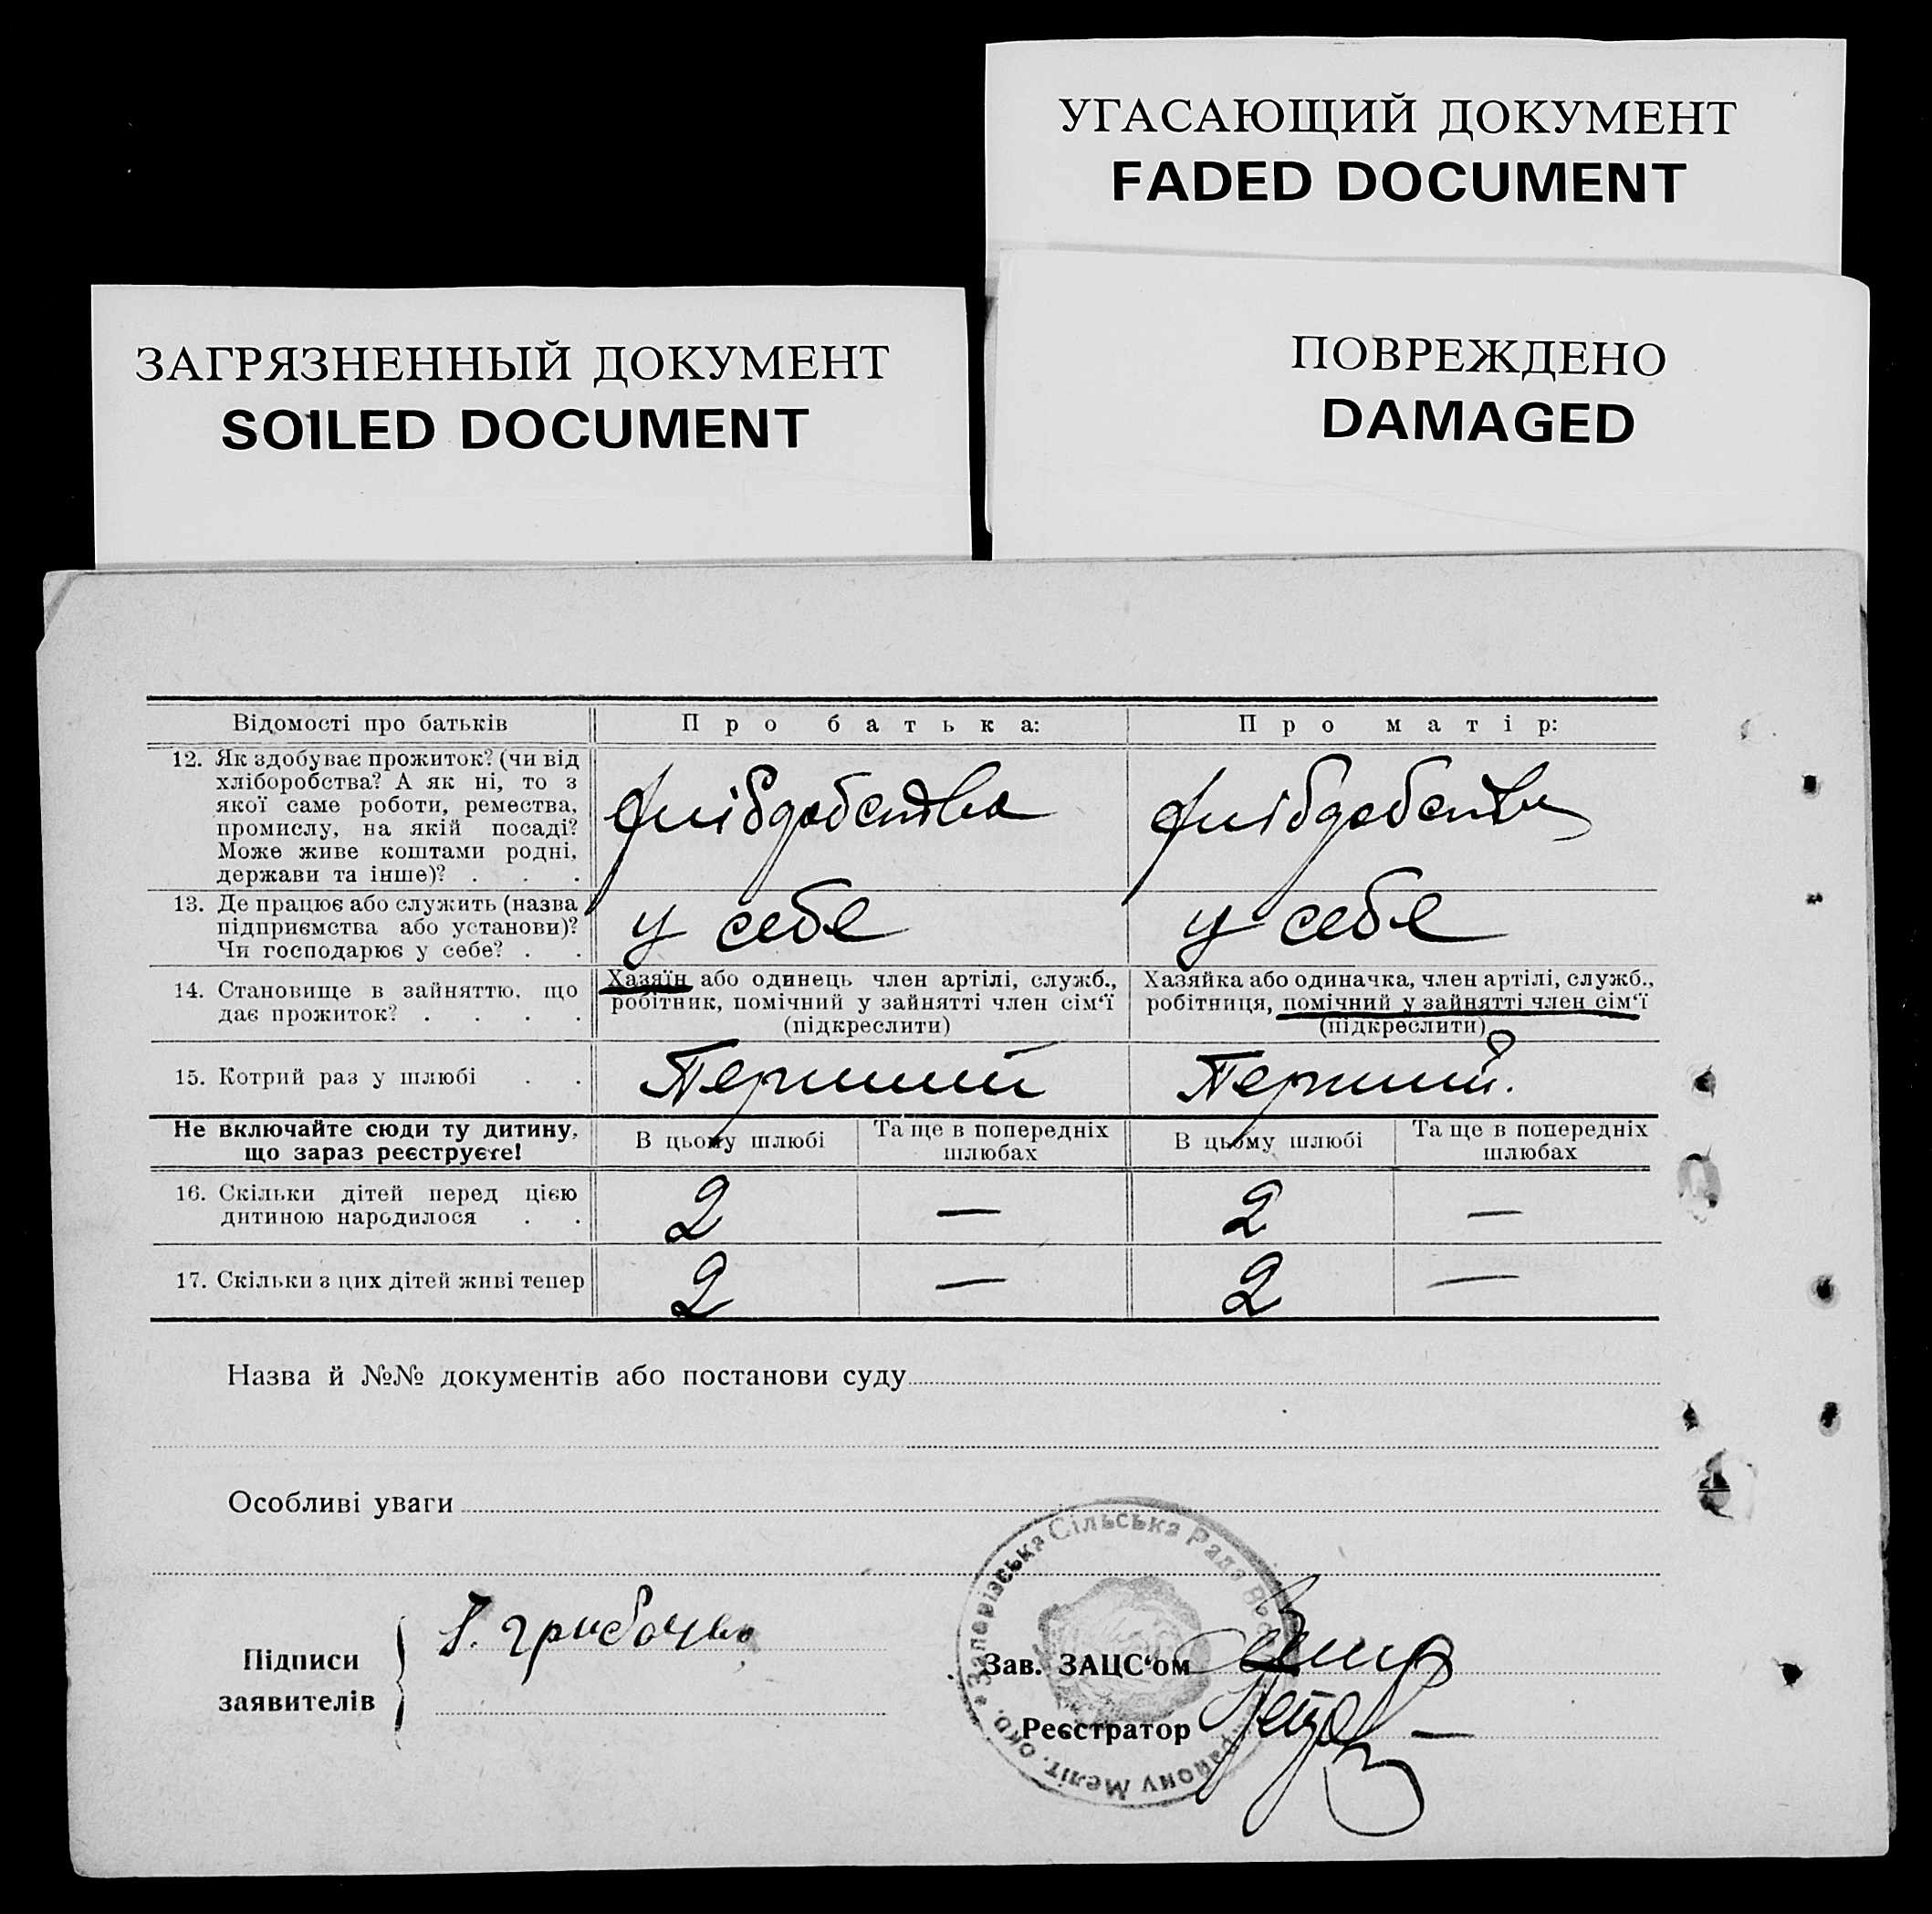 УГАСАЮЩИЙ ДОКУМЕНТ
FADED DOCUMENT
ПОВРЕЖДЕНО
DAMAGED
ЗАГРЯЗНЕННЫЙ ДОКУМЕНТ
SOILED DOCUMENT
Відомості про батьків
Про батька:
Про матір:
12. Як здобуває прожиток? (чи від
хліборобства? А як ні, то з
якої саме роботи, ремества,
промислу, на якій посаді?
Може живе коштами родні,
держави та інше)? . . .
13. Де працює або служить (назва
підприємства або установи)?
Чи господарює у себе? . .
у себе
у себе
14. Становище в зайняттю, що
дає прожиток? . . . .
Хазяїн або одинець член артілі, служб.,
робітник, помічний у зайнятті член сім‘ї
(підкреслити)
Хазяйка або одиначка, член артілі, служб.,
робітниця, помічний у зайнятті член сім‘ї
(підкреслити)
15. Котрий раз у шлюбі . .
Перший
Перший.
Не включайте сюди ту дитину,
що зараз реєструєте!
В цьому шлюбі
Та ще в попередніх
шлюбах
В цьому шлюбі
Та ще в попередніх
шлюбах
16. Скільки дітей перед цією
дитиною народилося . .
2 — 2 —
17. Скільки з цих дітей живі тепер
2 — 2 —
Назва й №№ документів або постанови суду
Особливі уваги
Підписи
заявителів
Зав. ЗАЦС‘ом
Реєстратор
Сільська Рада
району Меліт. окр.